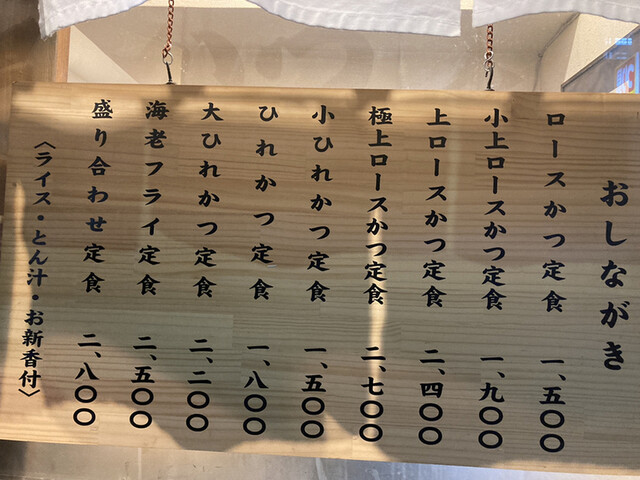 おしながき
ロースかつ定食 一、五〇〇
小上ロースかつ定食 一、九〇〇
上ロースかつ定食 二、四〇〇
極上ロースかつ定食 二、七〇〇
小ひれかつ定食 一、五〇〇
ひれかつ定食 一、八〇〇
大ひれかつ定食 二、二〇〇
海老フライ定食 二、五〇〇
盛り合わせ定食 二、八〇〇
〈ライス・とん汁・お新香付〉